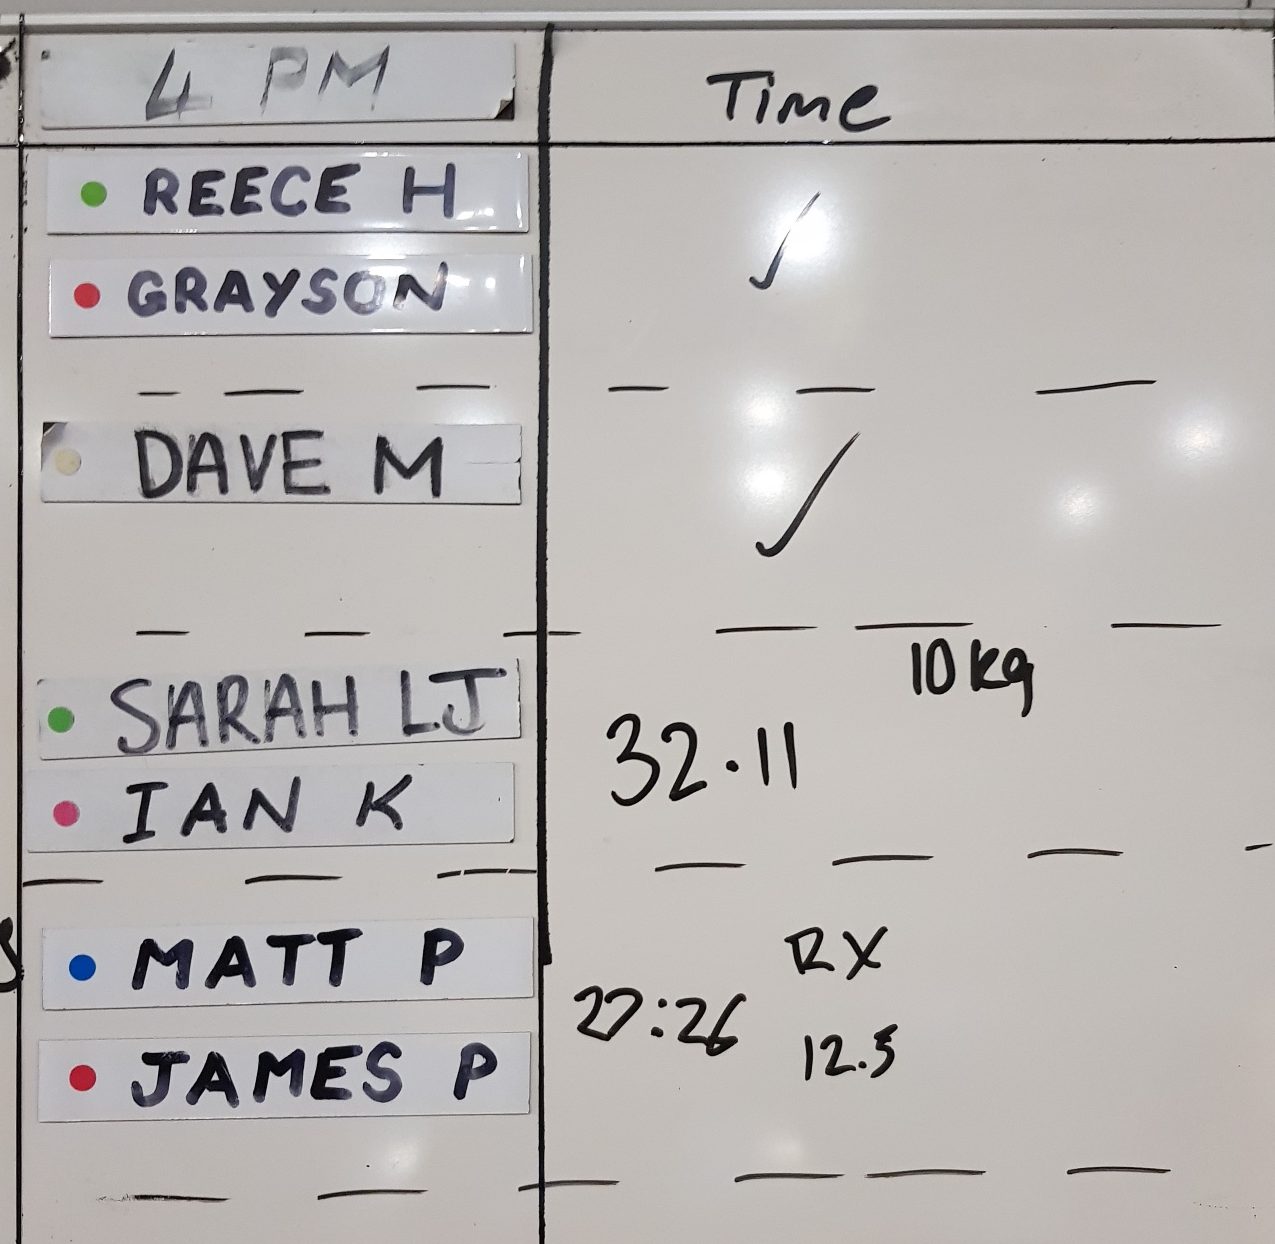 4 PM
Time
REECE H
✓
GRAYSON
DAVE M
✓
10kg
SARAH LJ
32.11
IAN K
MATT P
RX
27:26
12.5
JAMES P